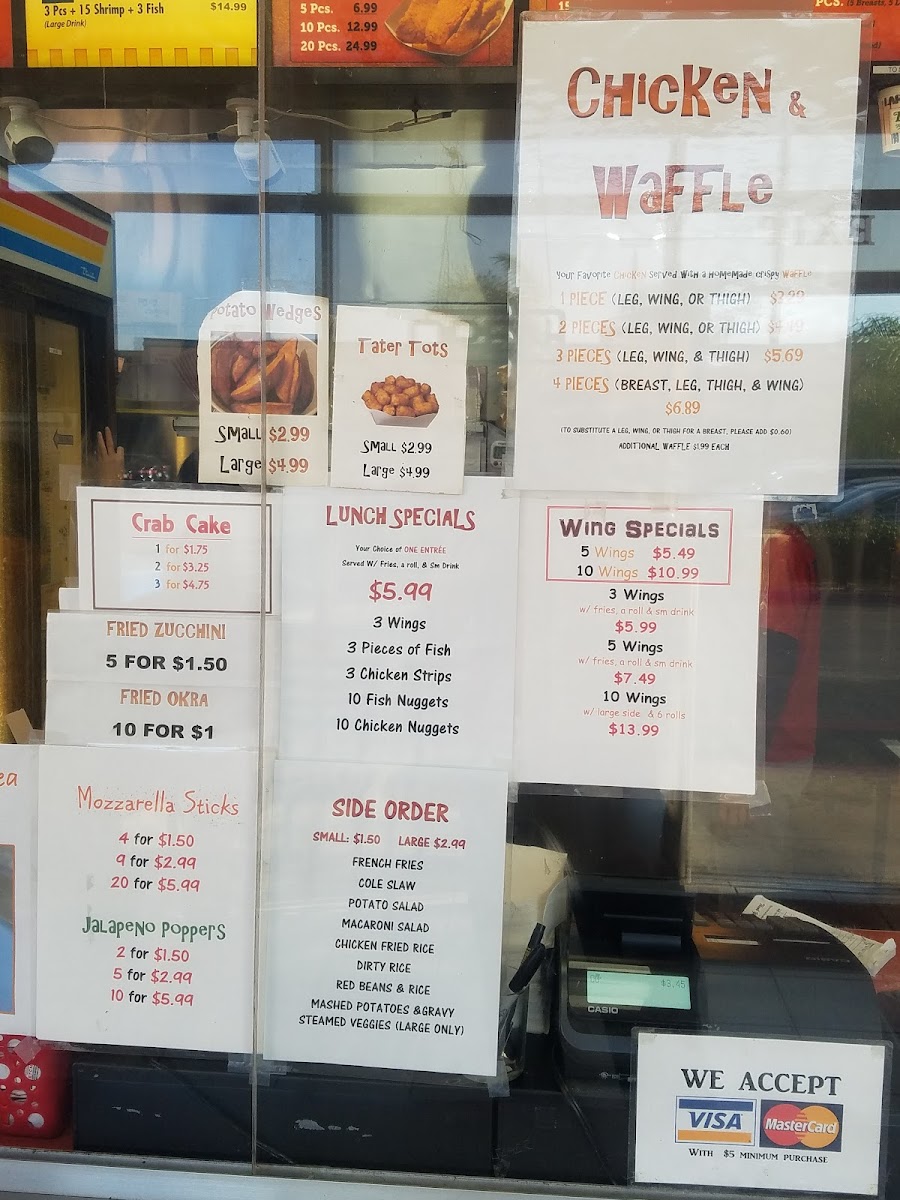 3 Pcs + 15 Shrimp + 3 Fish $14.99
(Large Drink)
5 Pcs. 6.99
10 Pcs. 12.99
20 Pcs. 24.99
CHICKEN &
WAFFLE
Your Favorite Chicken Served With a Homemade Crispy Waffle
1 PIECE (LEG, WING, OR THIGH)
2 PIECES (LEG, WING, OR THIGH)
3 PIECES (LEG, WING, & THIGH) $5.69
4 PIECES (BREAST, LEG, THIGH, & WING)
$6.89
(TO SUBSTITUTE A LEG, WING, OR THIGH FOR A BREAST, PLEASE ADD $0.60)
ADDITIONAL WAFFLE $1.99 EACH
Potato Wedges
Small $2.99
Large $4.99
Tater Tots
Small $2.99
Large $4.99
Crab Cake
1 for $1.75
2 for $3.25
3 for $4.75
FRIED ZUCCHINI
5 FOR $1.50
FRIED OKRA
10 FOR $1
LUNCH SPECIALS
Your Choice of ONE ENTRÉE
Served W/ Fries, a roll, & Sm Drink
$5.99
3 Wings
3 Pieces of Fish
3 Chicken Strips
10 Fish Nuggets
10 Chicken Nuggets
WING SPECIALS
5 Wings $5.49
10 Wings $10.99
3 Wings
w/ fries, a roll & sm drink
$5.99
5 Wings
w/ fries, a roll & sm drink
$7.49
10 Wings
w/ large side & 6 rolls
$13.99
ea
Mozzarella Sticks
4 for $1.50
9 for $2.99
20 for $5.99
Jalapeno Poppers
2 for $1.50
5 for $2.99
10 for $5.99
SIDE ORDER
SMALL: $1.50 LARGE $2.99
FRENCH FRIES
COLE SLAW
POTATO SALAD
MACARONI SALAD
CHICKEN FRIED RICE
DIRTY RICE
RED BEANS & RICE
MASHED POTATOES & GRAVY
STEAMED VEGGIES (LARGE ONLY)
$3.45
CASIO
WE ACCEPT
VISA MasterCard
WITH $5 MINIMUM PURCHASE